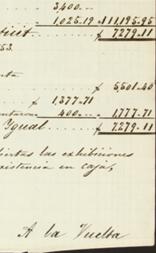 3,400...
1,025.19 11,195.95
icit....... $ 7279.11
53.
nta
....... $ 5,501.40
$ 1,377.71
ntaron 400... 1,777.71
Igual....... $ 7279.11
las exhibiciones
xistencia en caja,
A la Vuelta